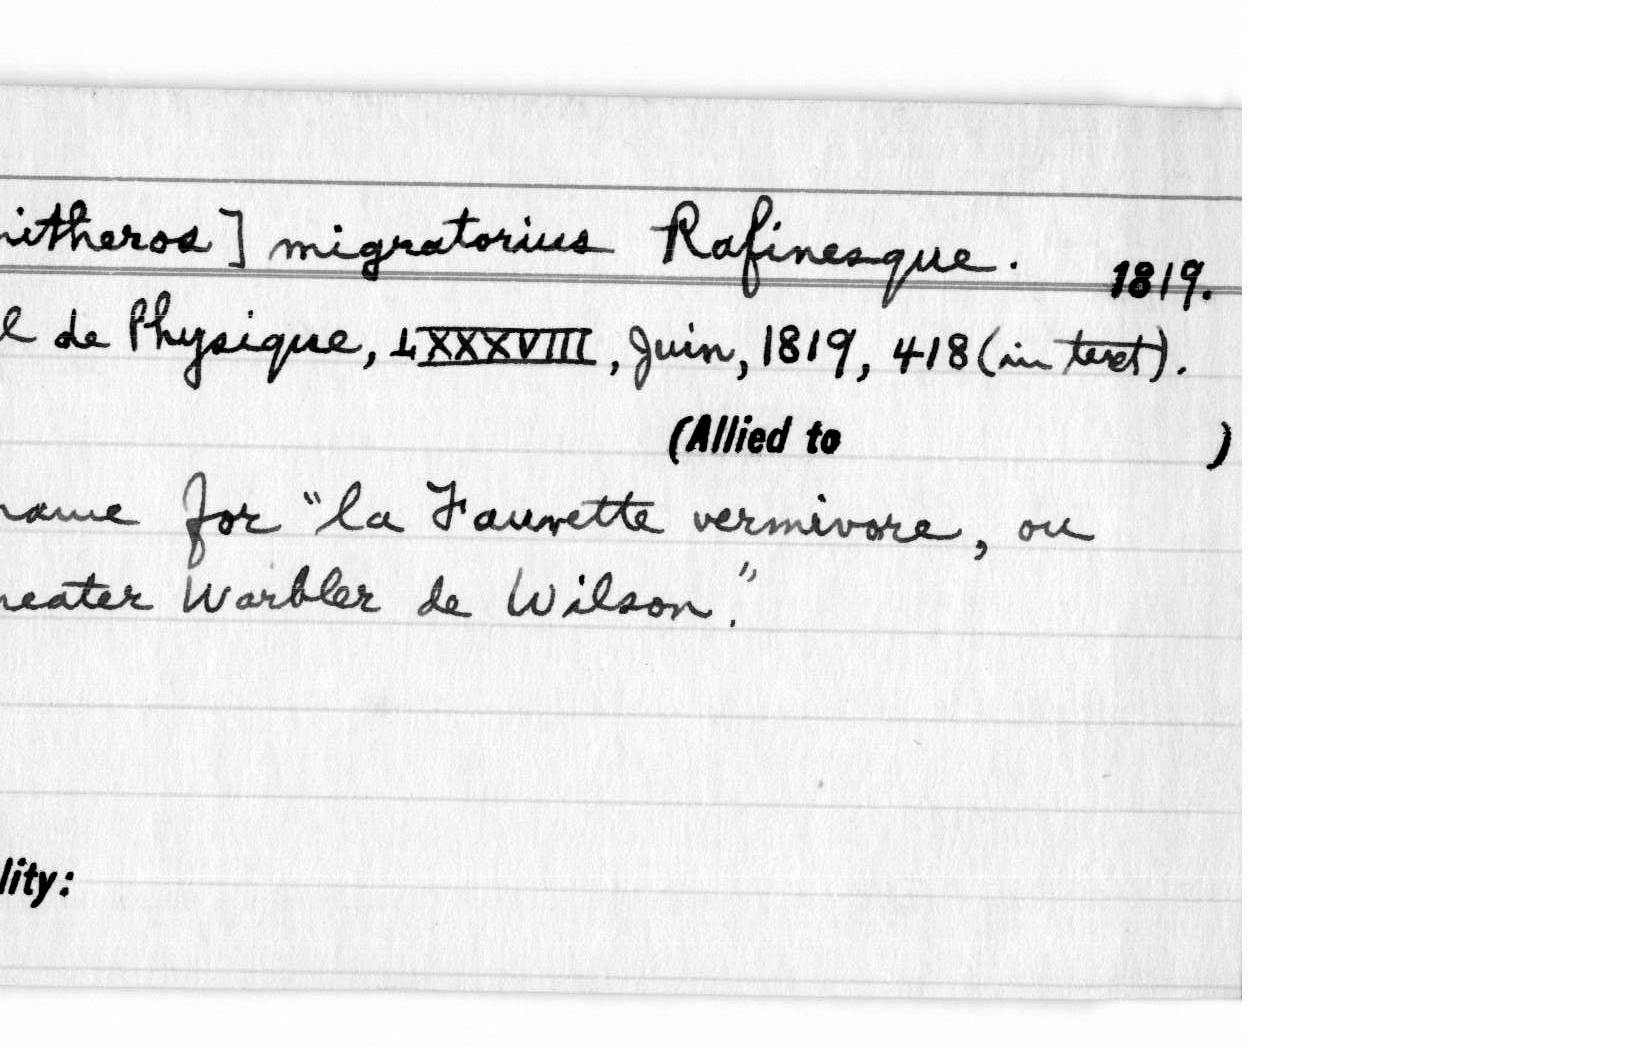 nitheros] migratorius Rafinesque. 1819.
l de Physique, LXXXVIII, Juin, 1819, 418 (in text).
(Allied to )
name for "la Fauvette vermivore, ou
neater Warbler de Wilson."
lity: